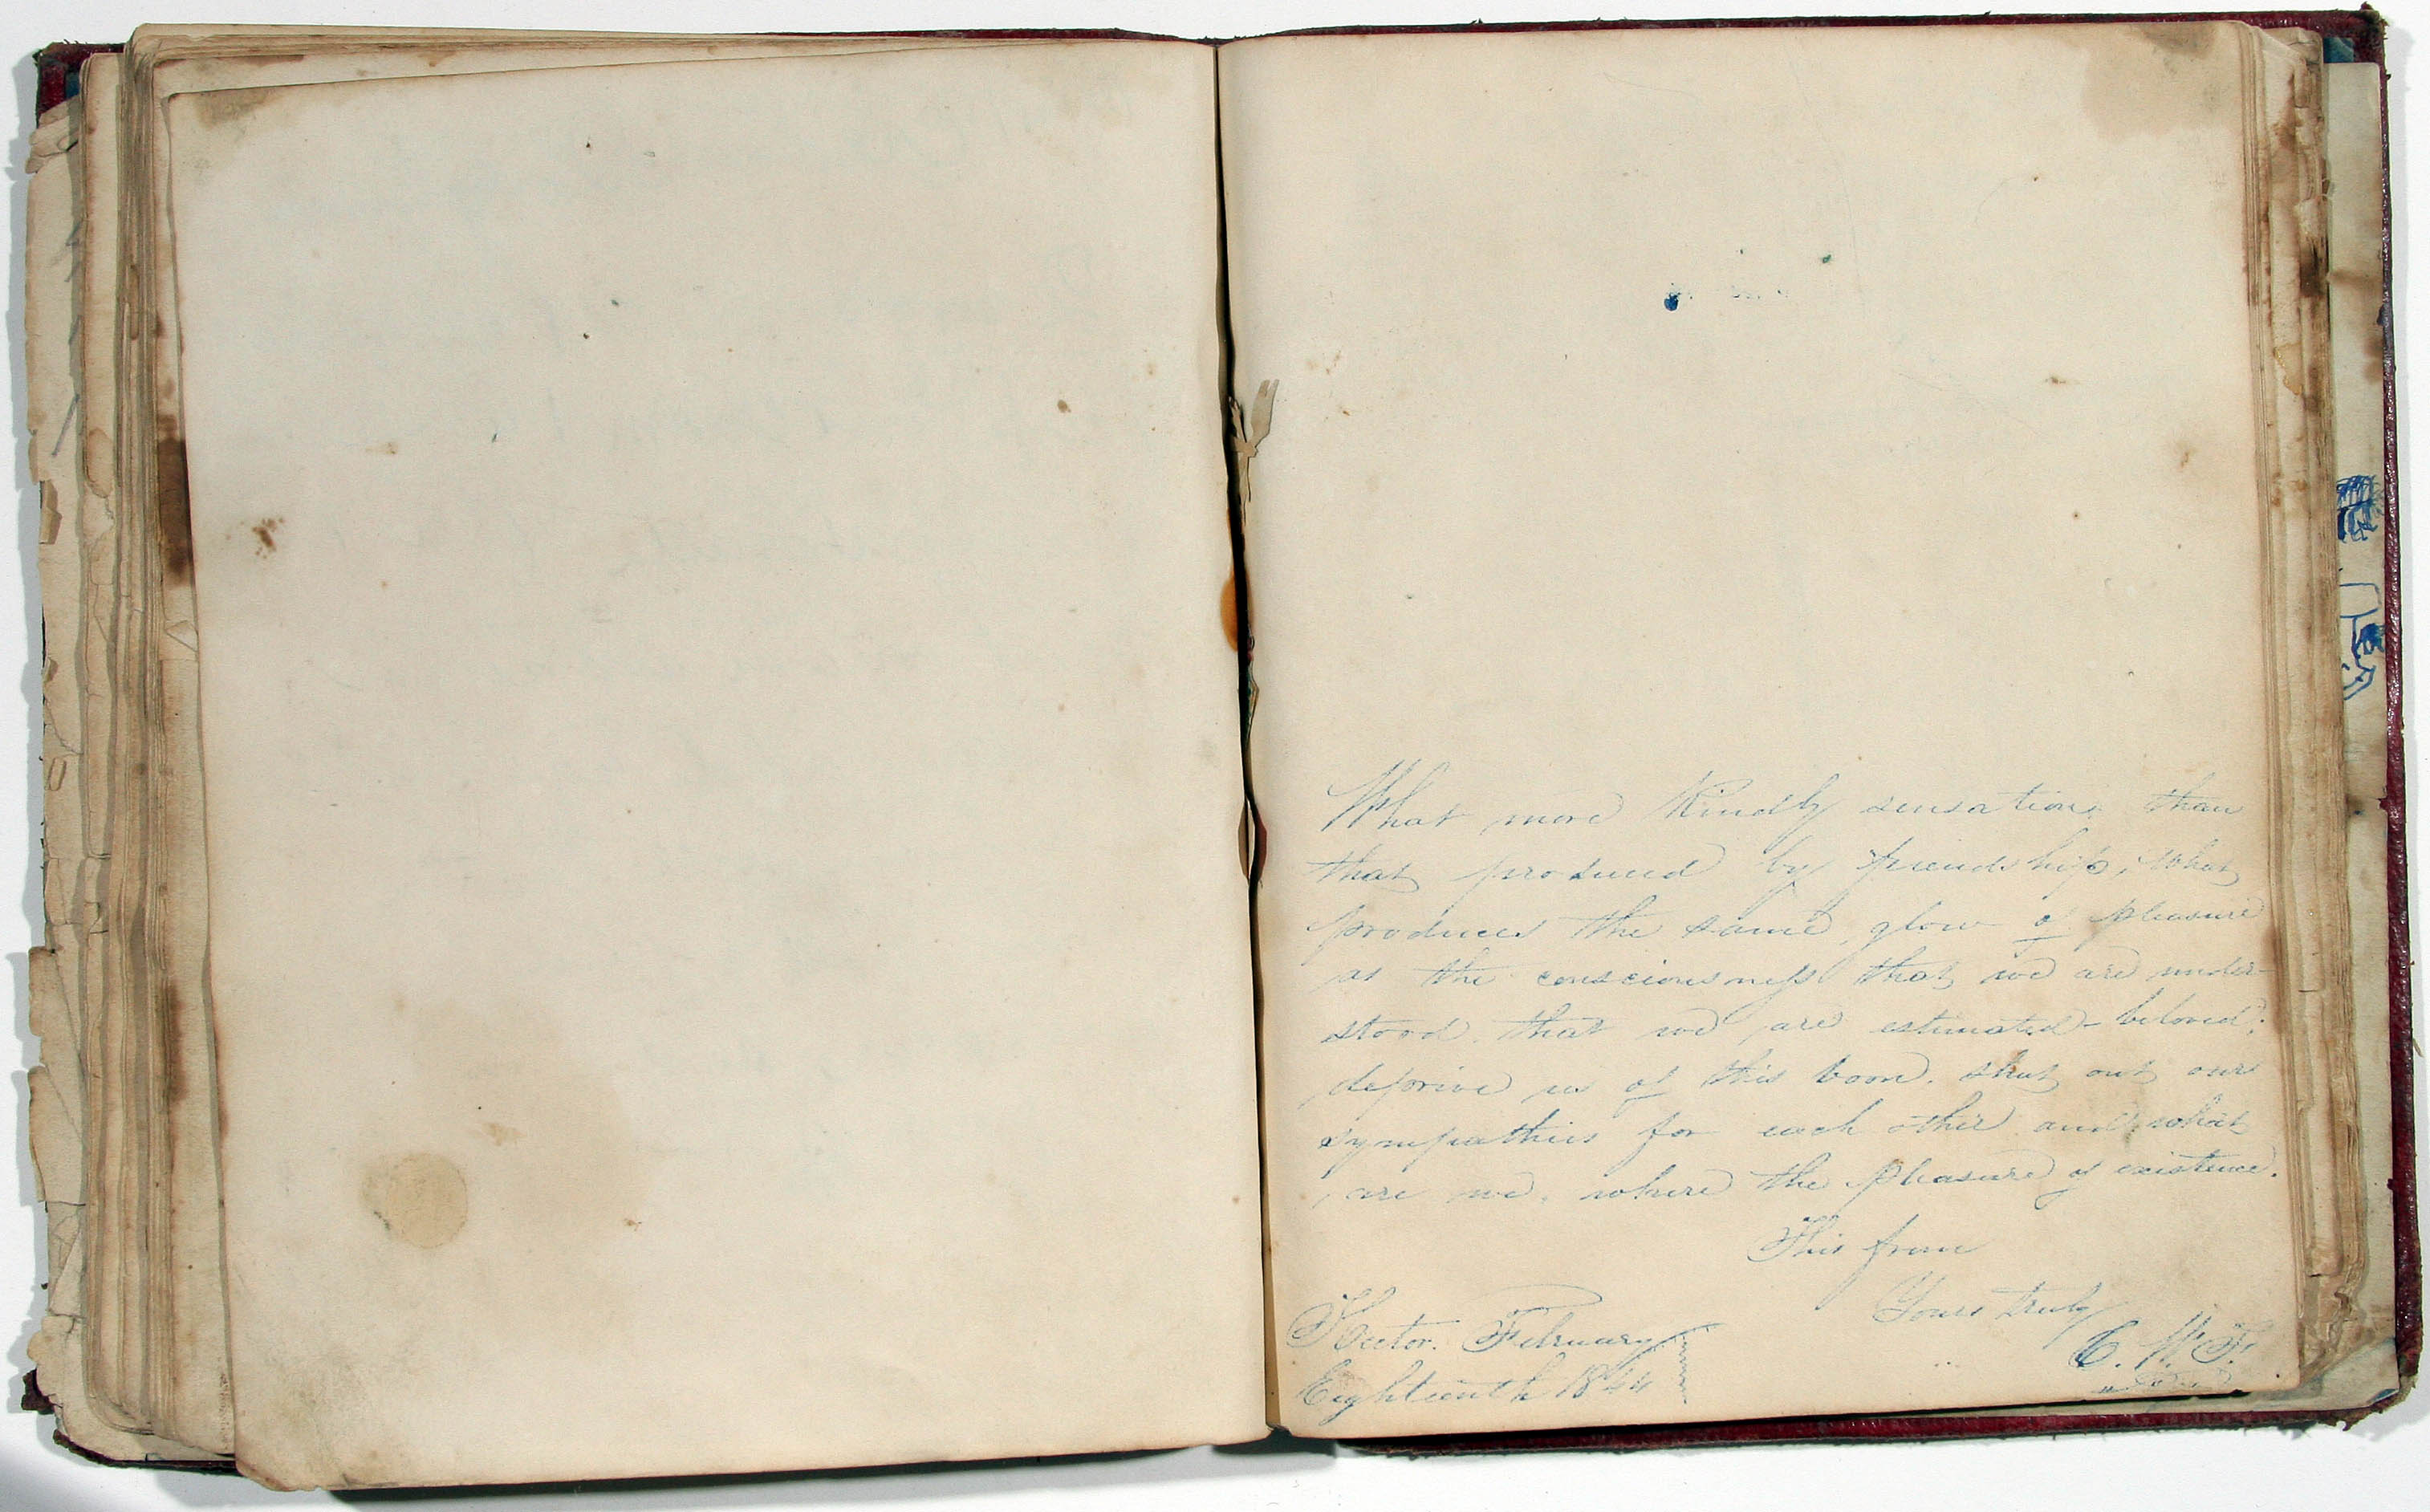 What more Kindly sensation, than
that produced by friendship; what
produces the same glow of pleasure
as the consciousness that we are under-
stood. that we are estimated - beloved;
deprive us of this boon. shut out our
sympathies for each other and what
are we. where the pleasure of existence.
This from
Yours truly
C. W. F.
Hector. February
Eighteenth 1844